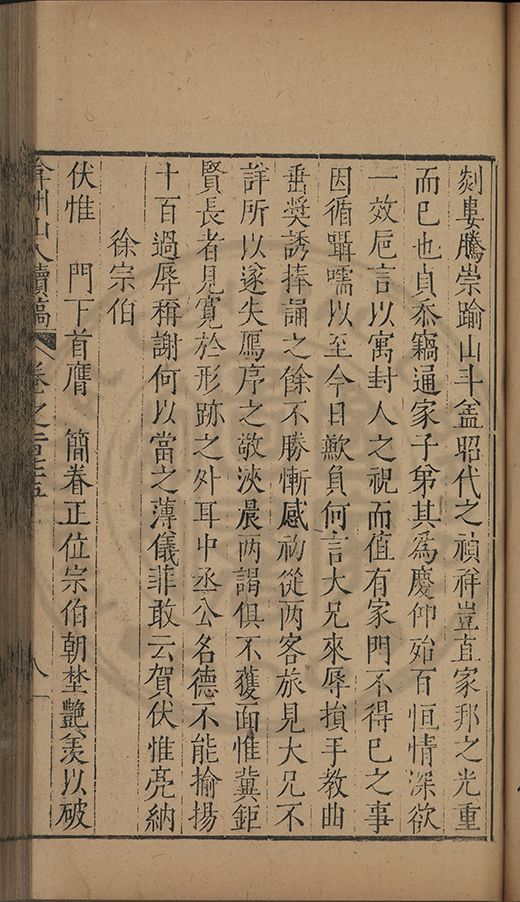 剡婁騰崇踰山斗盖昭代之禎祥豈直家邦之光重
而巳也貞忝竊通家子弟其爲慶仰殆百恒情深欲
一效巵言以寓封人之祝而值有家門不得巳之事
因循躡嚅以至今日歉負何言大兄來辱損手教曲
垂奬誘捧誦之餘不勝慚感初從两客旅見大兄不
詳所以遂失鴈序之敬浹晨两謁俱不獲面惟冀鉅
賢長者見寬於形跡之外耳中丞公名德不能揄揚
十百過辱稱謝何以當之薄儀菲敢云賀伏惟亮納
徐宗伯
伏惟 門下首膺 簡眷正位宗伯朝埜艷羨以破
弇州山人續稿 卷之一百 八